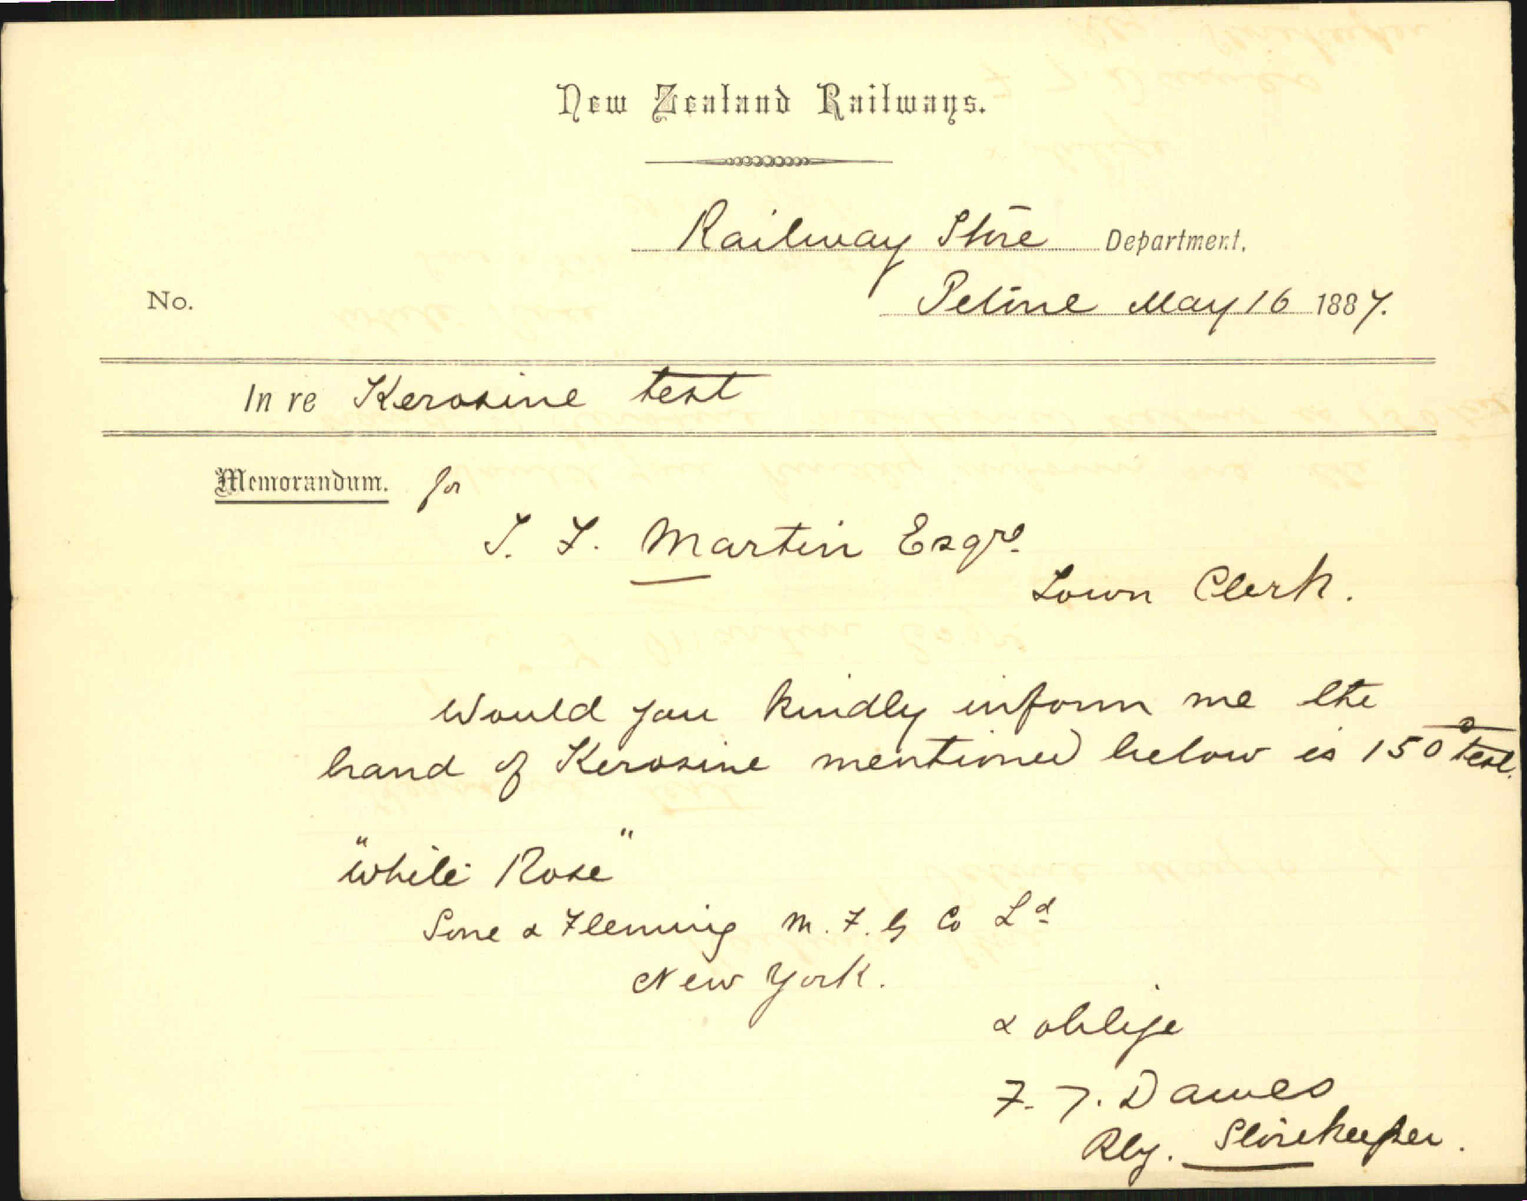 New Zealand Railways.
Railway Store Department.
No.
Petone May 16 1887.
In re Kerosine test
Memorandum. for
T. F. Martin Esqre.
Town Clerk.
Would you kindly inform me the
brand of Kerosine mentioned below is 150° test.
"White Rose"
Sone & Fleming M.F.G Co Ld
New York.
& oblige
F. T. Dawes
Rly. Storekeeper.